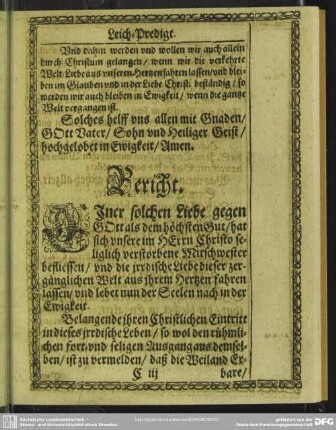 Leich-Predigt.
Vnd dahin werden vnd wollen wir auch allein
durch Christum gelangen / wenn wir die verkehrte
Welt-Liebe aus vnseren Hertzen fahren lassen / vnd blei-
ben im Glauben vnd in der Liebe Christi beständig / so
werden wir auch bleiben in Ewigkeit / wenn die gantze
Welt vergangen ist.
Solches helff vns allen mit Gnaden /
GOtt Vater / Sohn vnd Heiliger Geist /
hochgelobet in Ewigkeit / Amen.
Bericht.
EIner solchen Liebe gegen
GOtt als dem höchsten Gut / hat
sich vnsere im HErrn Christo se-
liglich verstorbene Mitschwester
beflissen / vnd die jrrdische Liebe dieser zer-
gänglichen Welt aus ihrem Hertzen fahren
lassen / vnd lebet nun der Seelen nach in der
Ewigkeit.
Belangende ihren Christlichen Eintritt
in dieses jrrdische Leben / so wol den rühmli-
chen fort- vnd seligen Ausgang aus demsel-
ben / ist zu vermelden / daß die Weiland Er-
C iij
bare /